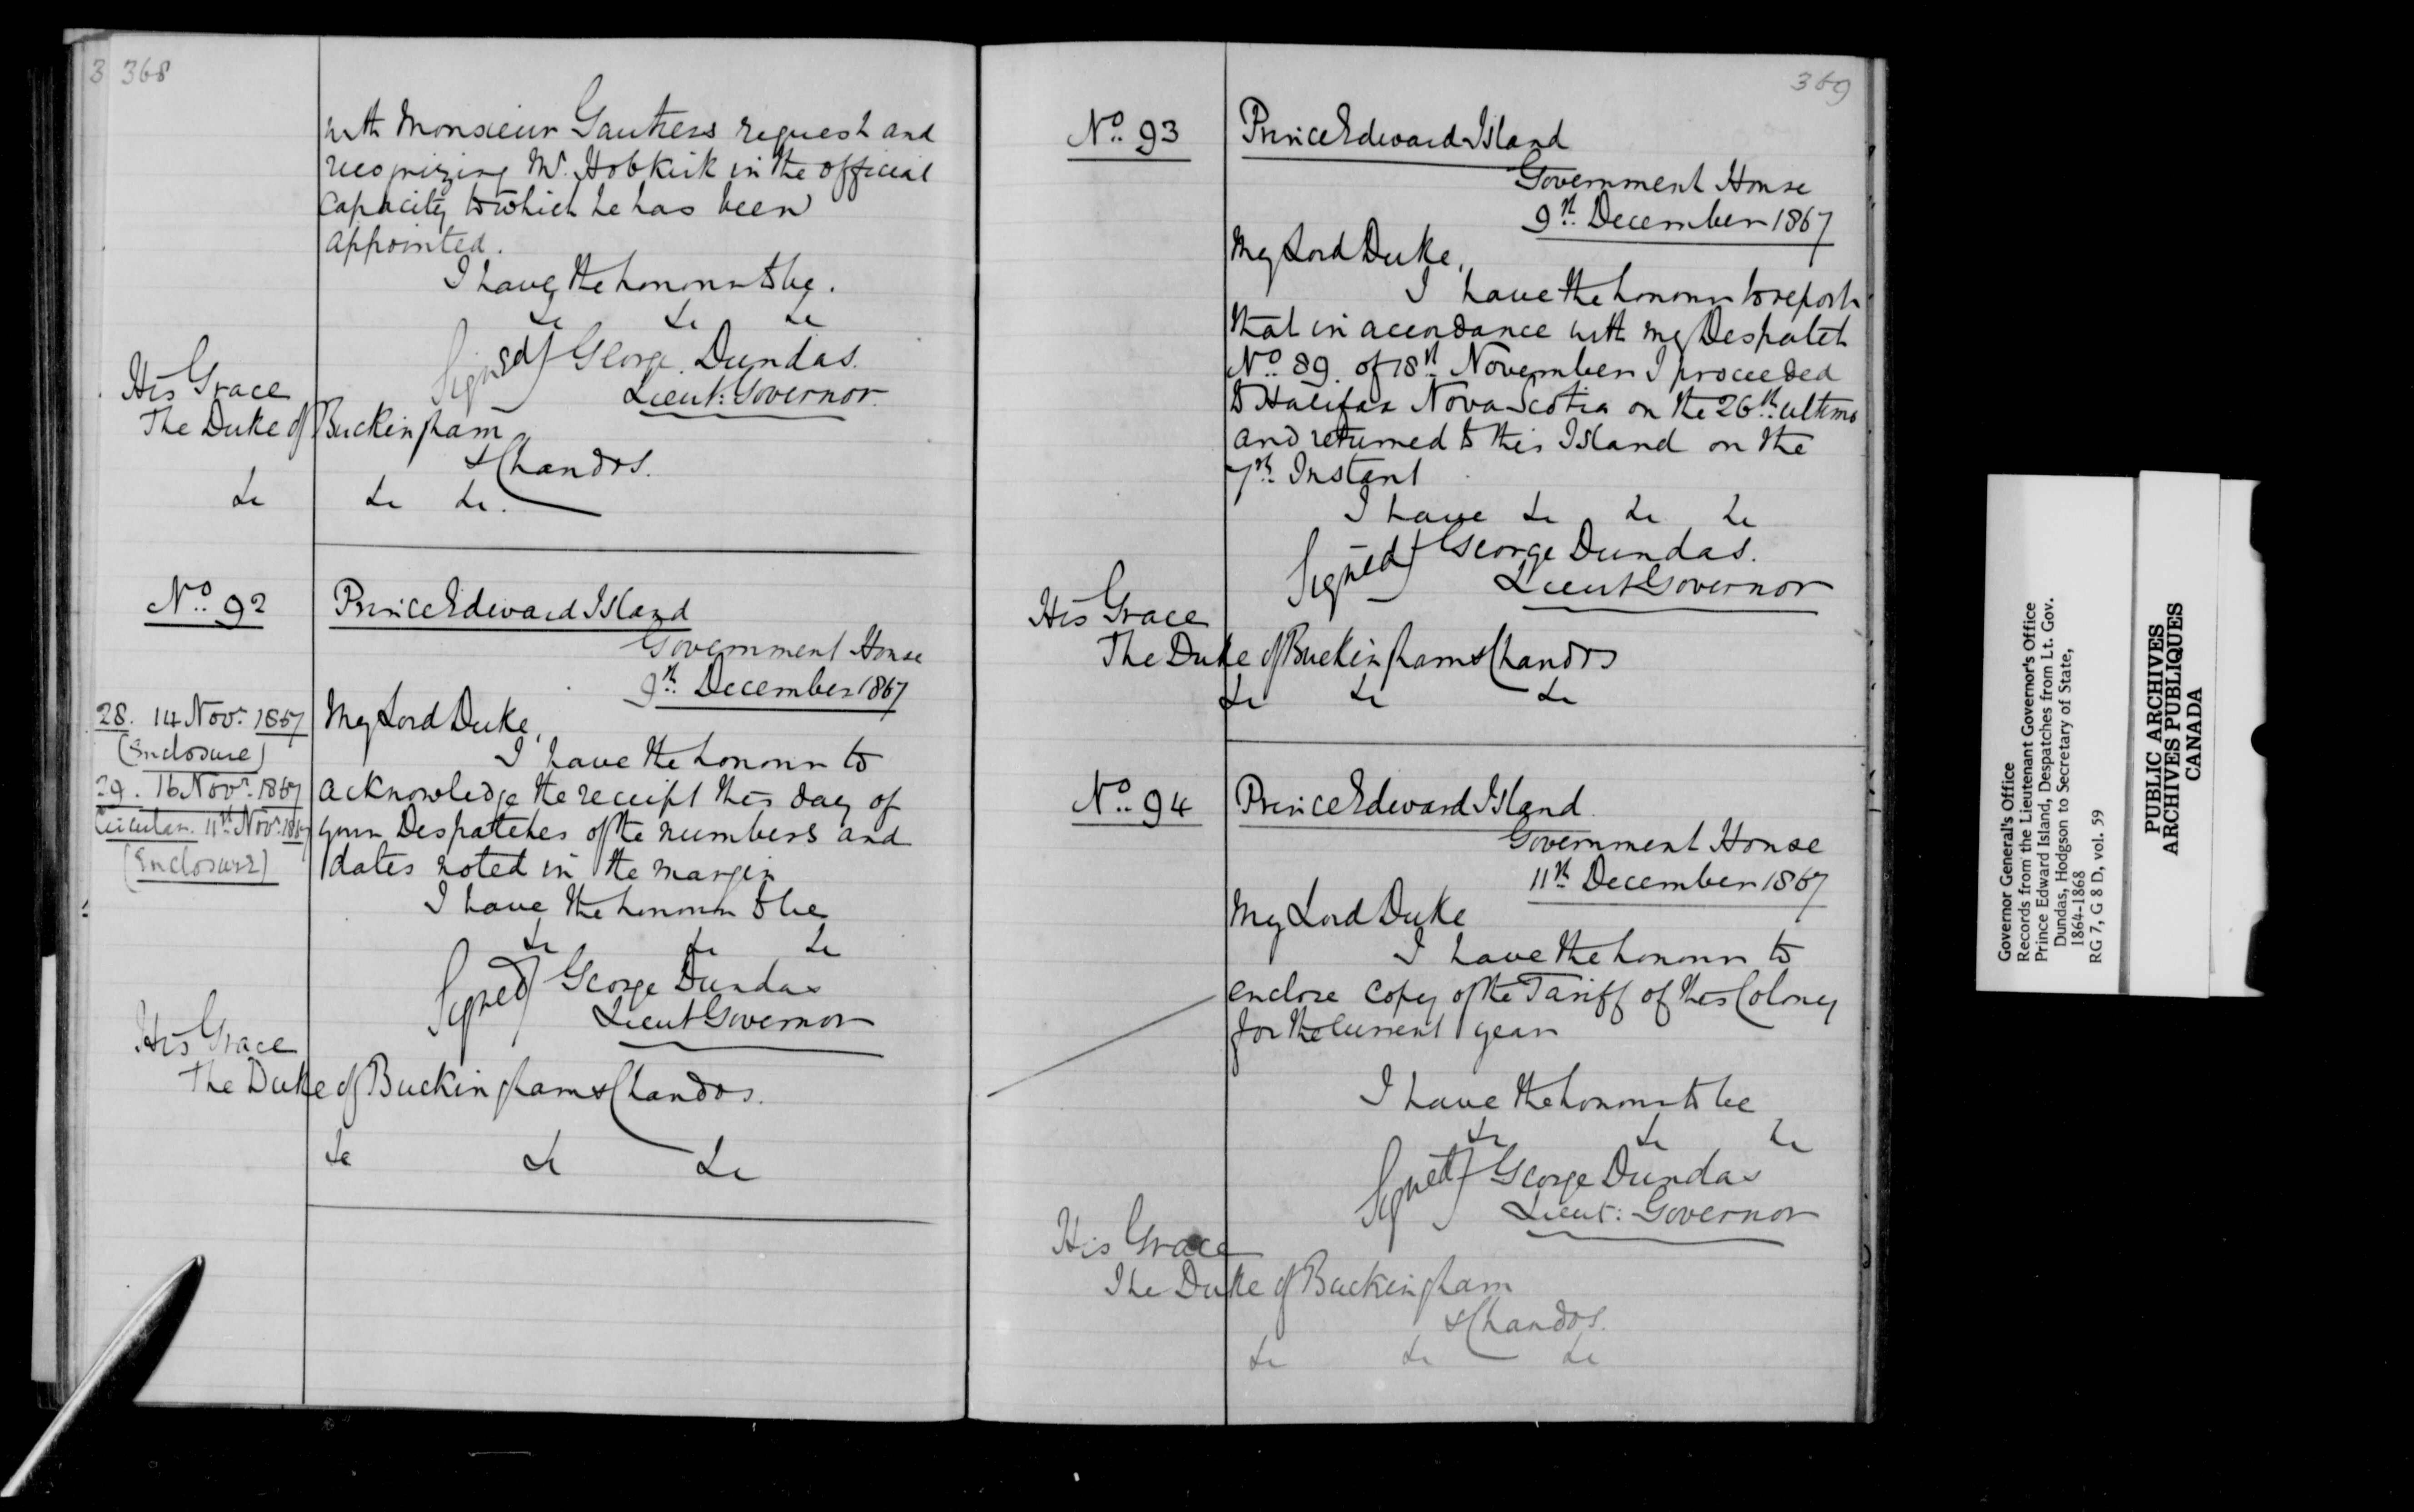 3 368
with Monsieur Gautiers request and
recognizing Mr. Hobkirk in the official
capacity to which he has been
appointed.
I have the honour to be.
&c &c &c
Signed) George Dundas.
Lieut: Governor.
His Grace
The Duke of Buckingham
& Chandos.
&c &c &c.
No. 92
Prince Edward Island
Government House
9th December 1867
28. 14 Novr. 1867
(Enclosure)
29. 16 Novr. 1867
Circular. 11th Novr. 1867
(Enclosure)
My Lord Duke,
I have the honour to
acknowledge the receipt this day of
your Despatches of the numbers and
dates noted in the margin
I have the honour to be
&c &c &c
Signed) George Dundas
Lieut Governor
His Grace
The Duke of Buckingham & Chandos.
&c &c &c
369
No. 93
Prince Edward Island
Government House
9th December 1867
My Lord Duke,
I have the honour to report
that in accordance with my Despatch
No. 89. of 18th November I proceeded
to Halifax Nova Scotia on the 26th ultimo
and returned to this Island on the
7th Instant
I have &c &c &c
Signed) George Dundas.
Lieut Governor
His Grace
The Duke of Buckingham & Chandos
&c &c &c
No. 94
Prince Edward Island
Government House
11th December 1867
My Lord Duke
I have the honour to
enclose copy of the Tariff of this Colony
for the current year
I have the honour to be
&c &c &c
Signed) George Dundas
Lieut: Governor
His Grace
The Duke of Buckingham
& Chandos.
&c &c &c
Governor General's Office
Records from the Lieutenant Governor's Office
Prince Edward Island, Despatches from Lt. Gov.
Dundas, Hodgson to Secretary of State,
1864-1868
RG 7, G 8 D, vol. 59
PUBLIC ARCHIVES
ARCHIVES PUBLIQUES
CANADA